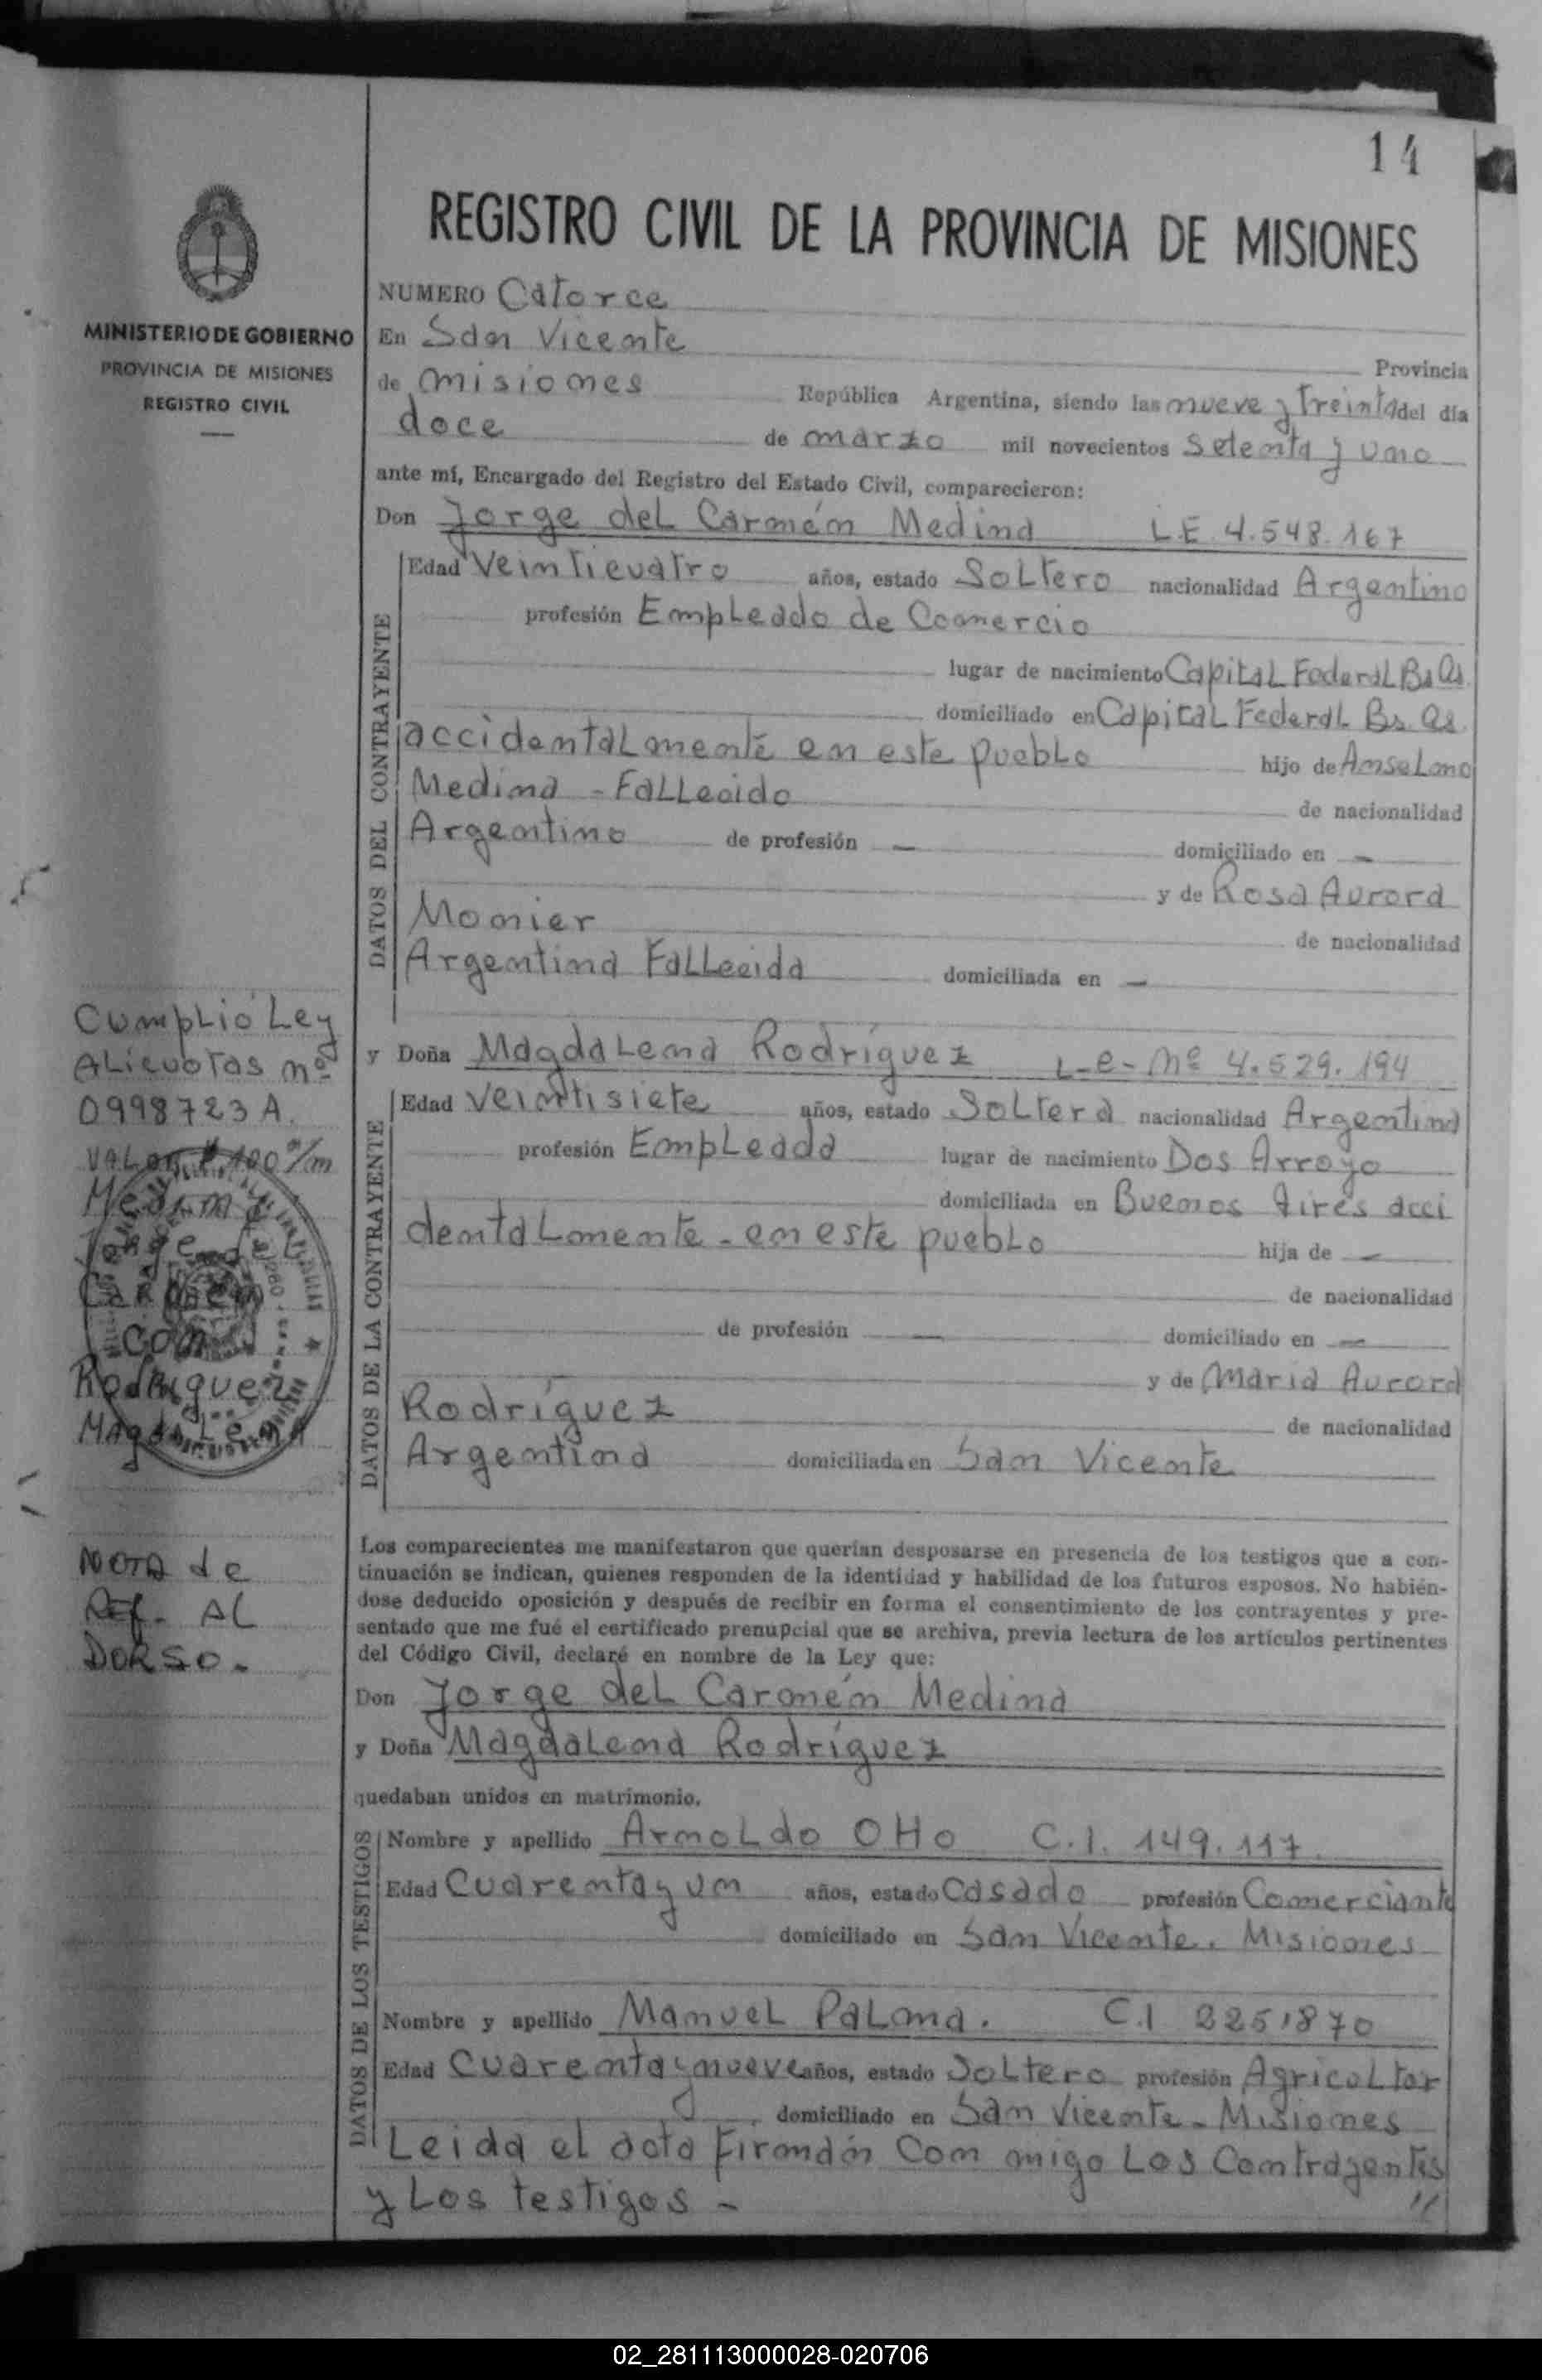 14
REGISTRO CIVIL DE LA PROVINCIA DE MISIONES
MINISTERIO DE GOBIERNO
PROVINCIA DE MISIONES
REGISTRO CIVIL
NUMERO Catorce
En San Vicente Provincia
de misiones República Argentina, siendo las nueve y treinta del día
doce de marzo mil novecientos setenta y uno
ante mí, Encargado del Registro del Estado Civil, comparecieron:
Don Jorge del Carmén Medina L.E. 4.548.167
DATOS DEL CONTRAYENTE
Edad Veinticuatro años, estado Soltero nacionalidad Argentino
profesión Empleado de Comercio
lugar de nacimiento Capital Federal Bs As.
domiciliado en Capital Federal Bs. As.
accidentalmente en este pueblo hijo de Anselmo
Medina - Fallecido de nacionalidad
Argentino de profesión — domiciliado en —
y de Rosa Aurora
Monier de nacionalidad
Argentina Fallecida domiciliada en —
y Doña Magdalena Rodríguez L-e- Nº 4.529.194
DATOS DE LA CONTRAYENTE
Edad Veintisiete años, estado Soltera nacionalidad Argentina
profesión Empleada lugar de nacimiento Dos Arroyo
domiciliada en Buenos Aires acci
dentalmente - en este pueblo hija de —
de nacionalidad
de profesión — domiciliado en —
y de Maria Aurora
Rodríguez de nacionalidad
Argentina domiciliada en San Vicente
Cumplió Ley
Alicuotas nº
0998723 A.
VALOR $ 100 m/m
Medina
Jorge del
Carmen
con
Rodriguez
Magdalena
Nota de
Ref. AL
DORSO.
Los comparecientes me manifestaron que querían desposarse en presencia de los testigos que a con-
tinuación se indican, quienes responden de la identidad y habilidad de los futuros esposos. No habién-
dose deducido oposición y después de recibir en forma el consentimiento de los contrayentes y pre-
sentado que me fué el certificado prenupcial que se archiva, previa lectura de los artículos pertinentes
del Código Civil, declaré en nombre de la Ley que:
Don Jorge del Carmén Medina
y Doña Magdalena Rodríguez
quedaban unidos en matrimonio.
DATOS DE LOS TESTIGOS
Nombre y apellido Arnoldo OHo C.I. 149.117
Edad Cuarenta y un años, estado Casado profesión Comerciante
domiciliado en San Vicente. Misiones
Nombre y apellido Manuel Palma. C.I 225.870
Edad Cuarenta y nueve años, estado Soltero profesión Agricultor
domiciliado en San Vicente - Misiones
Leida el acta Firmán Con migo Los Contrayentes
y Los testigos - //
02_281113000028-020706